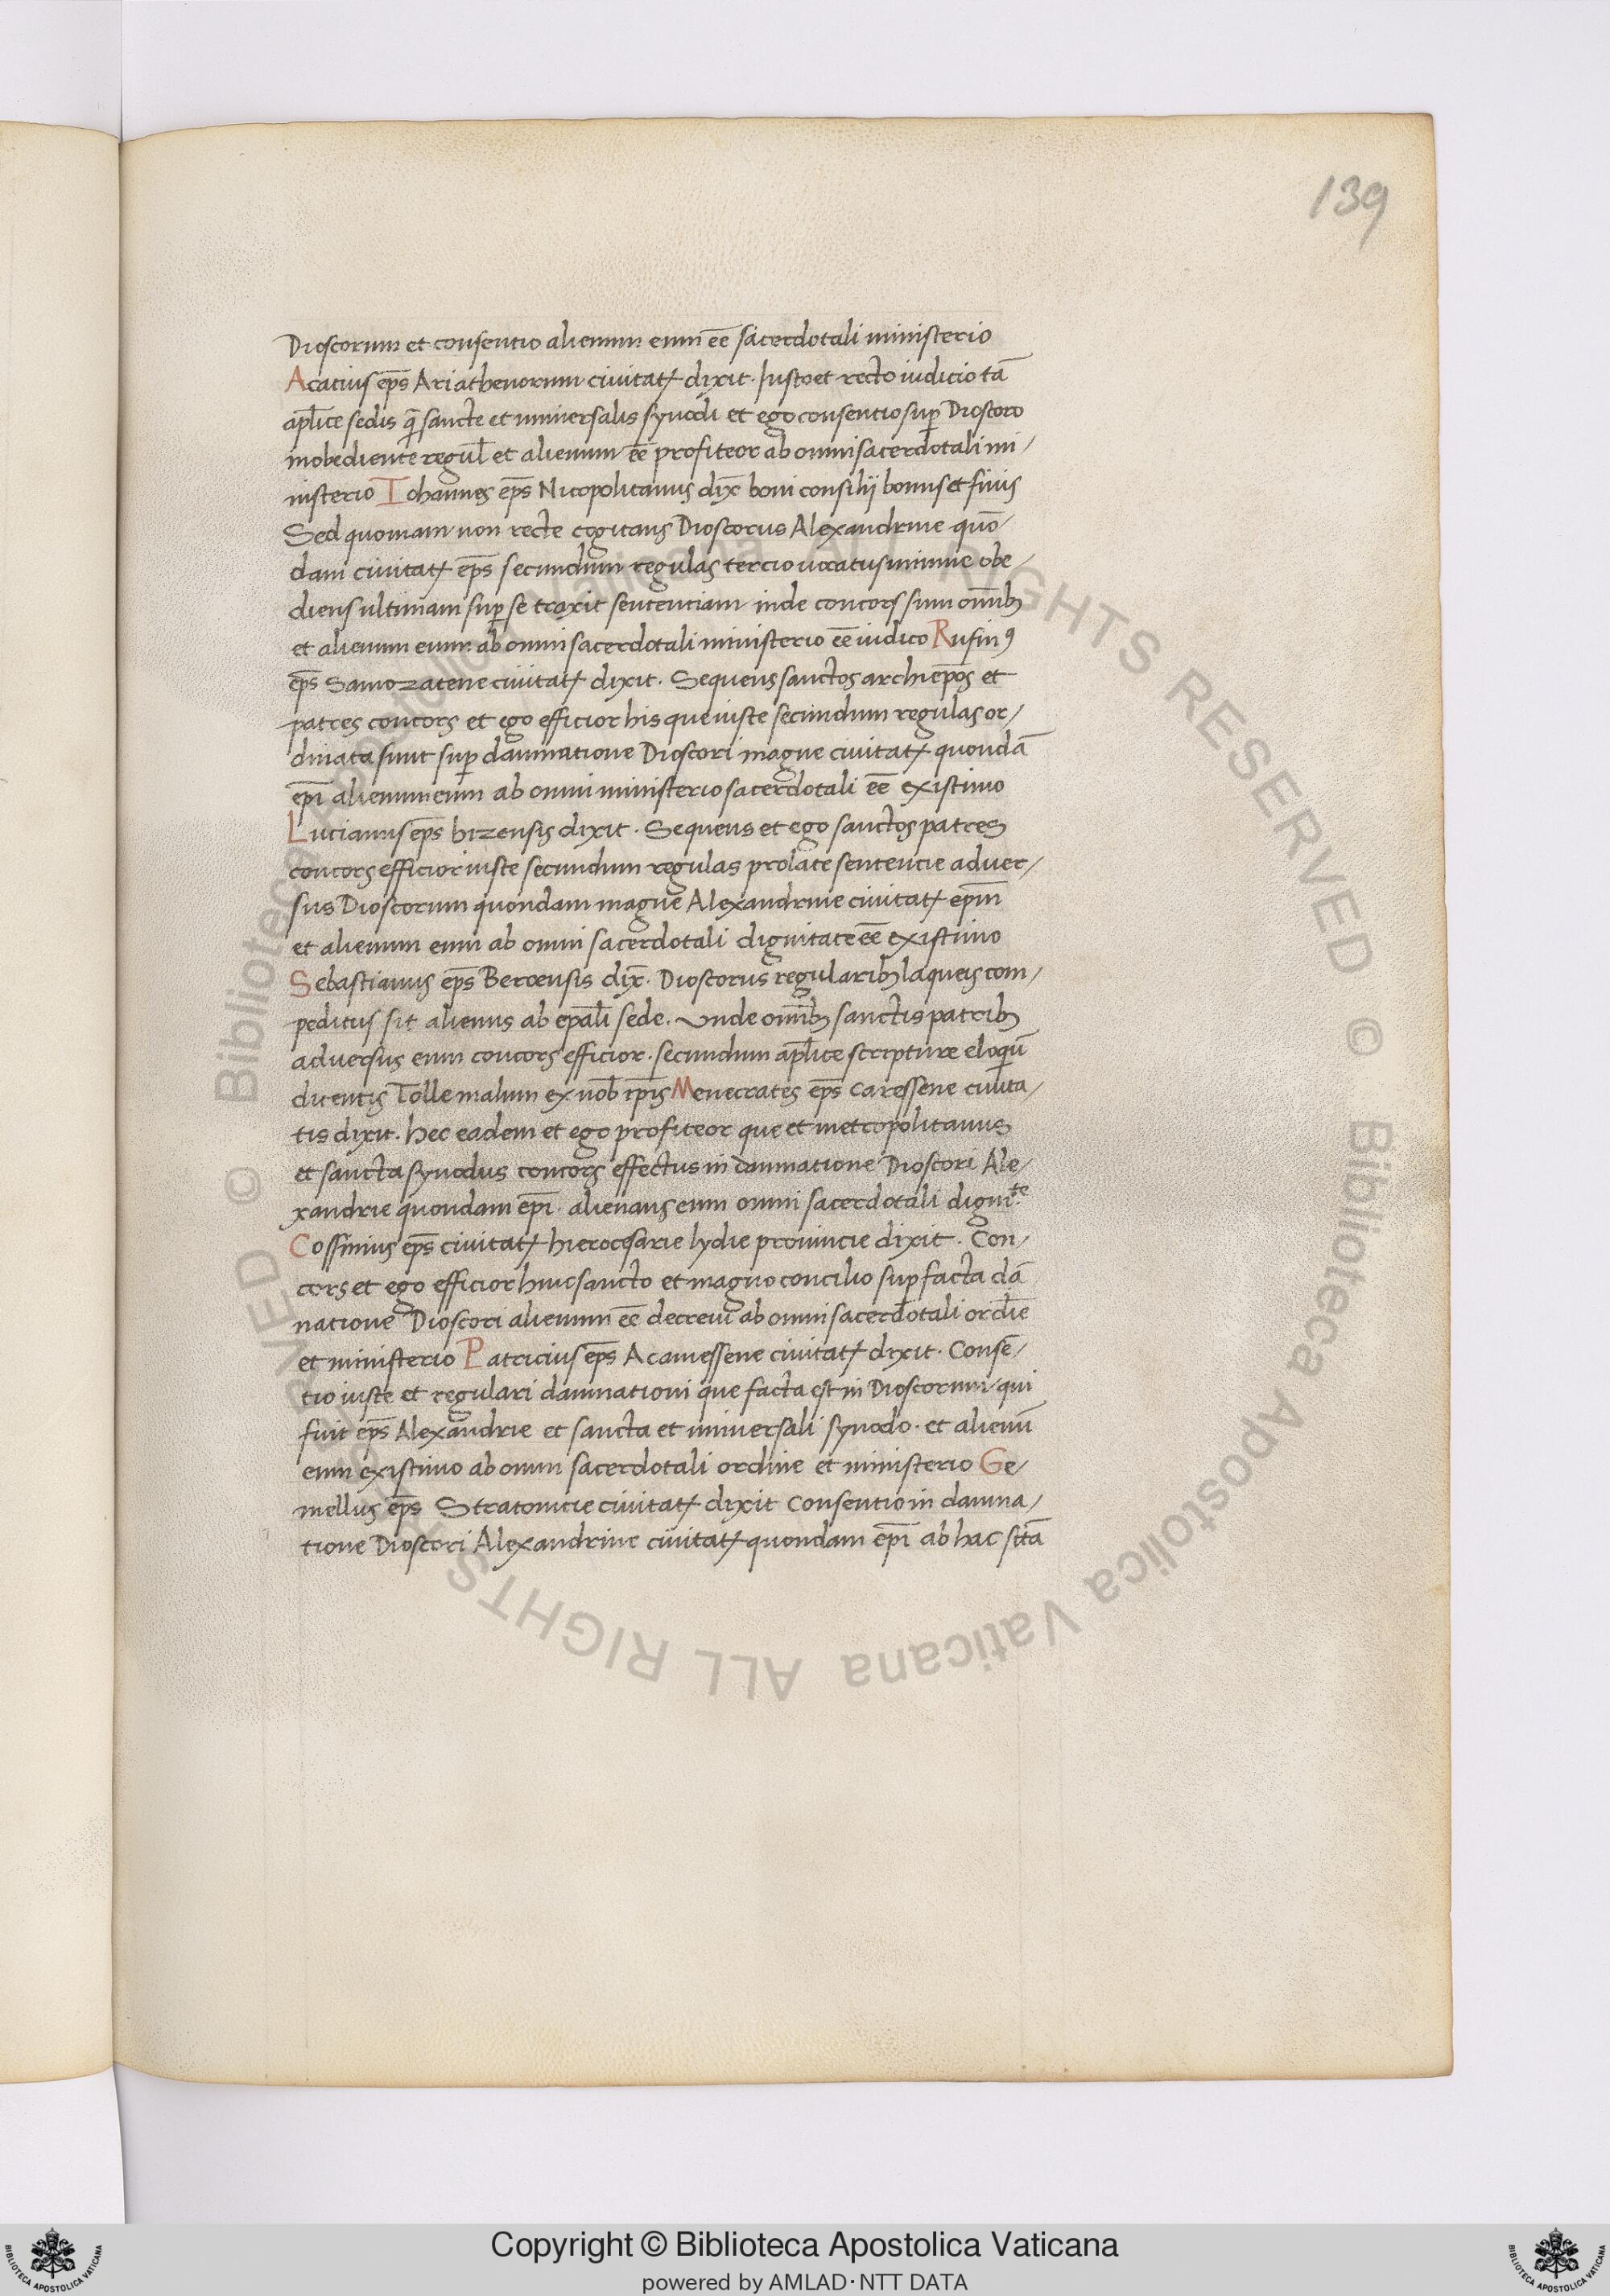 139
Dioscorum et consentio alienum eum ēē sacerdotali ministerio
Acatius ep̄s Ariathenorum ciuitatꝭ dixit. Justo et recto iudicio tā
ap̄lice sedis q̄ sancte et uniuersalis synodi et ego consentio sup̄ Dioscoro
inobediente regul̄ et alienum ēē profiteor ab omni sacerdotali mi/
nisterio Iohannes ep̄s Nicopolitanus dix̄ boni consilii bonus et finis
Sed quoniam non recte cogitans Dioscorus Alexandrine quō/
dam ciuitatꝭ ep̄s secundum regulas tercio uocatus minime obe/
diens ultimam sup̄ se traxit sententiam inde concors sum om̄ibꝫ
et alienum eum ab omni sacerdotali ministerio ēē iudico Rufinꝯ
ep̄s Samozatene ciuitatꝭ dixit. Sequens sanctos archiep̄os et
patres concors et ego efficior his que iuste secundum regulas or/
dinata sunt sup̄ damnatione Dioscori magne ciuitatꝭ quondā
ep̄i alienum eum ab omni ministerio sacerdotali ēē existimo
Lucianus ep̄s bizensis dixit. Sequens et ego sanctos patres
concors efficior iuste secundum regulas prolate sentencie aduer/
sus Dioscorum quondam magne Alexandrine ciuitatꝭ ep̄m
et alienum eum ab omni sacerdotali dignitate ēē existimo
Sebastianus ep̄s Beroensis dix̄. Dioscorus regularibꝫ laqueis com/
peditus sit alienus ab ep̄ali sede. Unde om̄ibꝫ sanctis patribꝫ
aduersus eum concors efficior. secundum ap̄lice scripture eloquiū
dicentis Tolle malum ex nob̄ ip̄is Menecrates ep̄s caressene ciuita/
tis dixit. Hec eadem et ego profiteor que et metropolitanus
et sancta synodus concors effectus in damnatione Dioscori Ale/
xandrie quondam ep̄i. alienans eum omni sacerdotali dignite
Cossinius ep̄s ciuitatꝭ hierocesarie lydie prouincie dixit. Con/
cors et ego efficior huic sancto et magno concilio sup̄ facta dā
natione Dioscori alienum ēē decreui ab omni sacerdotali ordīe
et ministerio Patricius ep̄s Acamessene ciuitatꝭ dixit. Consē/
tio iuste et regulari damnationi que facta est in Dioscorum qui
fuit ep̄s Alexandrie et sancta et uniuersali synodo. et alienū
eum existimo ab omni sacerdotali ordine et ministerio Ge/
mellus ep̄s Stratonicie ciuitatꝭ dixit Consentio in damna/
tione Dioscori Alexandrine ciuitatꝭ quondam ep̄i ab hac sc̄tā
© Biblioteca Apostolica Vaticana ALL RIGHTS RESERVED © Biblioteca Apostolica Vaticana ALL RIGHTS RESERVED
BIBLIOTECA APOSTOLICA VATICANA
Copyright © Biblioteca Apostolica Vaticana
powered by AMLAD·NTT DATA
BIBLIOTECA APOSTOLICA VATICANA